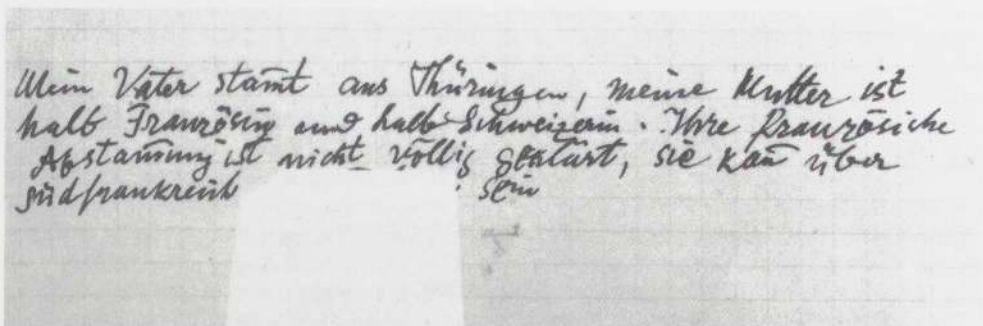 Mein Vater stam̄t aus Thüringen, meine Mutter ist
halb Französin und halb Schweizerin. Ihre französiche
Abstam̄ung ist nicht völlig geklärt, sie kan̄ über
südfrankreich sein